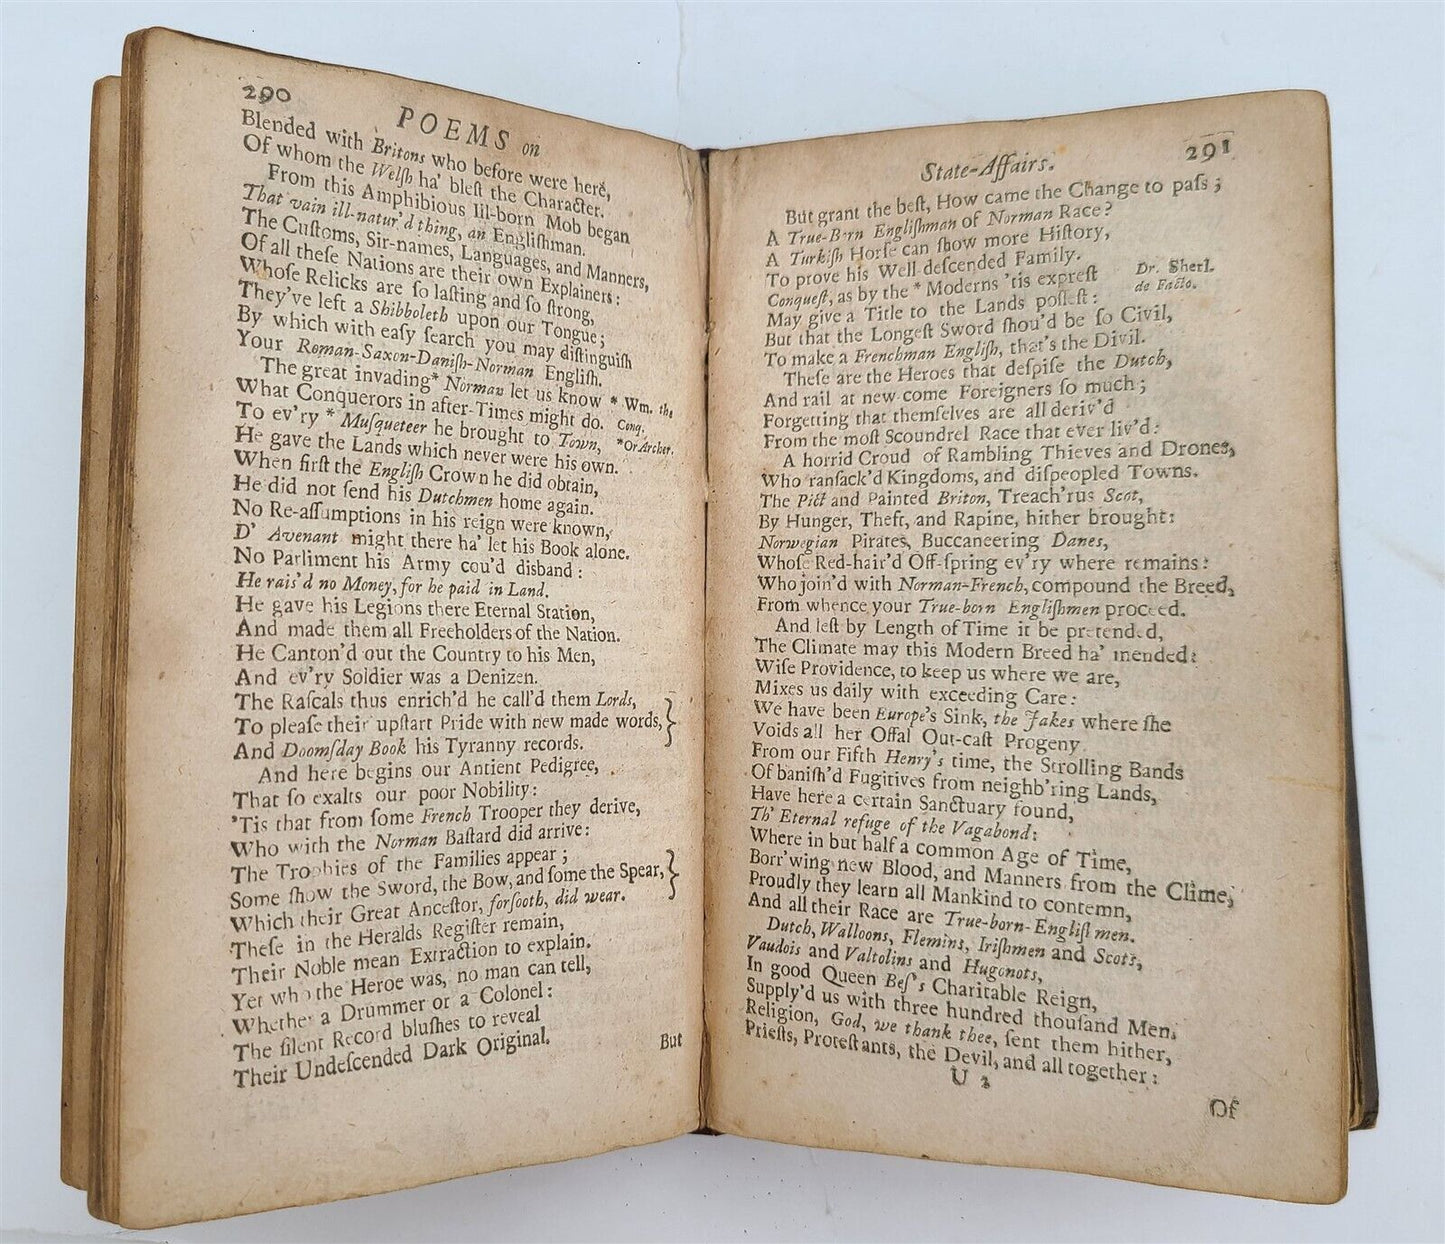 290
POEMS on
Blended with Britons who before were here,
Of whom the Welſh ha' bleſt the Character.
From this Amphibious Ill-born Mob began
That vain ill-natur'd thing, an Engliſhman.
The Cuſtoms, Sir-names, Languages, and Manners,
Of all theſe Nations are their own Explainers:
Whoſe Relicks are ſo laſting and ſo ſtrong,
They've left a Shibboleth upon our Tongue;
By which with eaſy ſearch you may diſtinguiſh
Your Roman-Saxon-Daniſh-Norman Engliſh.
The great invading* Norman let us know * Wm. the
What Conquerors in after-Times might do. Conq.
To ev'ry * Muſqueteer he brought to Town, *Or Archer.
He gave the Lands which never were his own.
When firſt the Engliſh Crown he did obtain,
He did not ſend his Dutchmen home again.
No Re-aſſumptions in his reign were known,
D' Avenant might there ha' let his Book alone.
No Parliment his Army cou'd disband:
He rais'd no Money, for he paid in Land.
He gave his Legions there Eternal Station,
And made them all Freeholders of the Nation.
He Canton'd out the Country to his Men,
And ev'ry Soldier was a Denizen.
The Raſcals thus enrich'd he call'd them Lords,
To pleaſe their upſtart Pride with new made words,
And Doomſday Book his Tyranny records.
And here begins our Antient Pedigree,
That ſo exalts our poor Nobility:
'Tis that from ſome French Trooper they derive,
Who with the Norman Baſtard did arrive:
The Trophies of the Families appear;
Some ſhow the Sword, the Bow, and ſome the Spear,
Which their Great Anceſtor, forſooth, did wear.
Theſe in the Heralds Regiſter remain,
Their Noble mean Extraction to explain.
Yet who the Heroe was, no man can tell,
Whether a Drummer or a Colonel:
The ſilent Record bluſhes to reveal
Their Undeſcended Dark Original.
But
State-Affairs.
291
But grant the beſt, How came the Change to paſs;
A True-Born Engliſhman of Norman Race?
A Turkiſh Horſe can ſhow more Hiſtory,
To prove his Well-deſcended Family.
Conqueſt, as by the * Moderns 'tis expreſt Dr. Sherl.
May give a Title to the Lands poſſeſt: de Facto.
But that the Longeſt Sword ſhou'd be ſo Civil,
To make a Frenchman Engliſh, that's the Divil.
Theſe are the Heroes that deſpiſe the Dutch,
And rail at new-come Foreigners ſo much;
Forgetting that themſelves are all deriv'd
From the moſt Scoundrel Race that ever liv'd:
A horrid Croud of Rambling Thieves and Drones,
Who ranſack'd Kingdoms, and diſpeopled Towns.
The Pict and Painted Briton, Treach'rus Scot,
By Hunger, Theft, and Rapine, hither brought:
Norwegian Pirates, Buccaneering Danes,
Whoſe Red-hair'd Off-ſpring ev'ry where remains:
Who join'd with Norman-French, compound the Breed,
From whence your True-born Engliſhmen proceed.
And leſt by Length of Time it be pretended,
The Climate may this Modern Breed ha' mended:
Wiſe Providence, to keep us where we are,
Mixes us daily with exceeding Care:
We have been Europe's Sink, the Jakes where ſhe
Voids all her Offal Out-caſt Progeny.
From our Fifth Henry's time, the Strolling Bands
Of baniſh'd Fugitives from neighb'ring Lands,
Have here a certain Sanctuary found,
Th' Eternal refuge of the Vagabond:
Where in but half a common Age of Time,
Borr'wing new Blood, and Manners from the Clime,
Proudly they learn all Mankind to contemn,
And all their Race are True-born-Engliſhmen.
Dutch, Walloons, Flemins, Iriſhmen and Scots,
Vaudois and Valtolins and Hugonots,
In good Queen Beſ's Charitable Reign,
Supply'd us with three hundred thouſand Men.
Religion, God, we thank thee, ſent them hither,
Prieſts, Proteſtants, the Devil, and all together:
U 2
Of